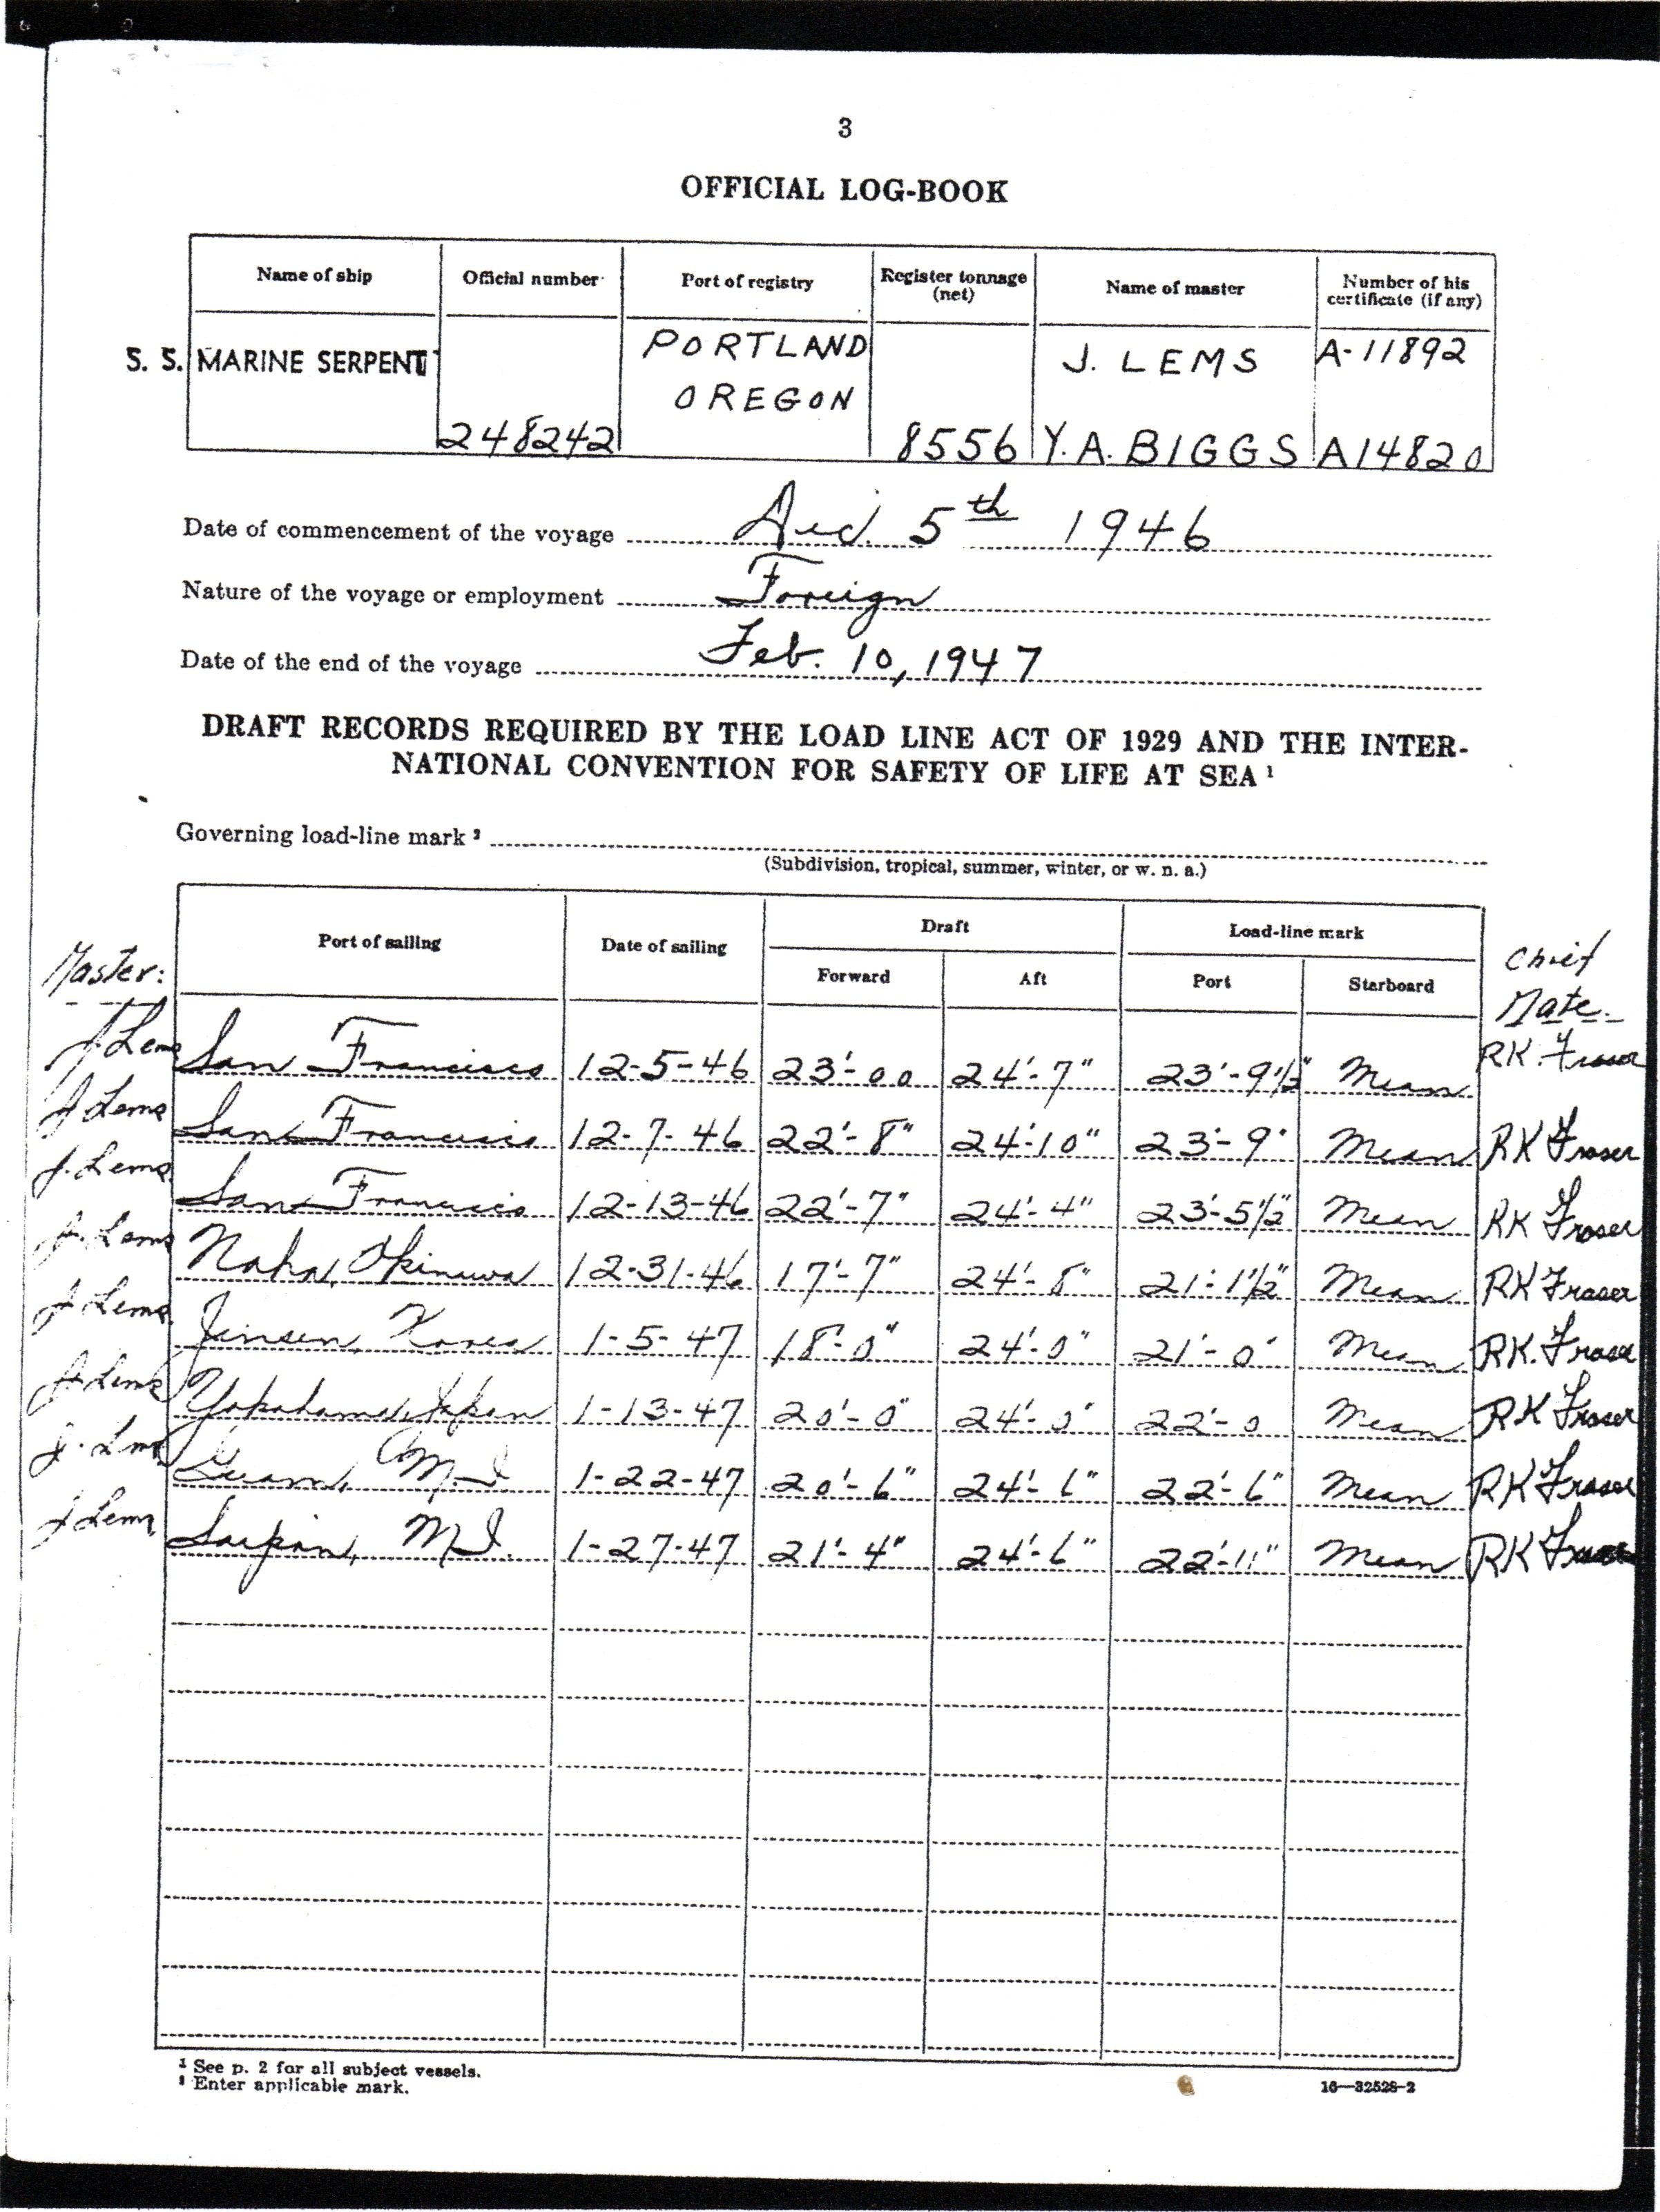 3
OFFICIAL LOG-BOOK
Name of ship Official number Port of registry Register tonnage (net) Name of master Number of his certificate (if any)
S. S. MARINE SERPENT 248242 PORTLAND OREGON 8556 J. LEMS A-11892
Y. A. BIGGS A14820
Date of commencement of the voyage Dec. 5th 1946
Nature of the voyage or employment Foreign
Date of the end of the voyage Feb. 10, 1947
DRAFT RECORDS REQUIRED BY THE LOAD LINE ACT OF 1929 AND THE INTER-
NATIONAL CONVENTION FOR SAFETY OF LIFE AT SEA 1
Governing load-line mark 2
(Subdivision, tropical, summer, winter, or w. n. a.)
Port of sailing Date of sailing Draft Load-line mark
Master: Forward Aft Port Starboard Chief Mate.
J. Lems San Francisco 12-5-46 23'-00 24'-7" 23'-9½" Mean RK. Fraser
J Lems San Francisco 12-7-46 22'-8" 24'-10" 23'-9" Mean RK Fraser
J. Lems San Francisco 12-13-46 22'-7" 24'-4" 23'-5½" Mean RK Fraser
J. Lems Naha, Okinawa 12-31-46 17'-7" 24'-8" 21'-1½" Mean RK Fraser
J Lems Jinsen, Korea 1-5-47 18'-0" 24'-0" 21'-0" Mean RK. Fraser
J Lems Yokohama, Japan 1-13-47 20'-0" 24'-0" 22'-0 Mean RK Fraser
J. Lems Guam, M.I 1-22-47 20'-6" 24'-6" 22'-6" Mean RK Fraser
J Lems Saipan, M.I. 1-27-47 21'-4" 24'-6" 22'-11" Mean RK Fraser
1 See p. 2 for all subject vessels.
2 Enter applicable mark.
16—32528-2